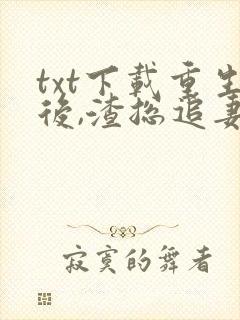 txt下載重生
後,渣総追妻
寂寞的舞者